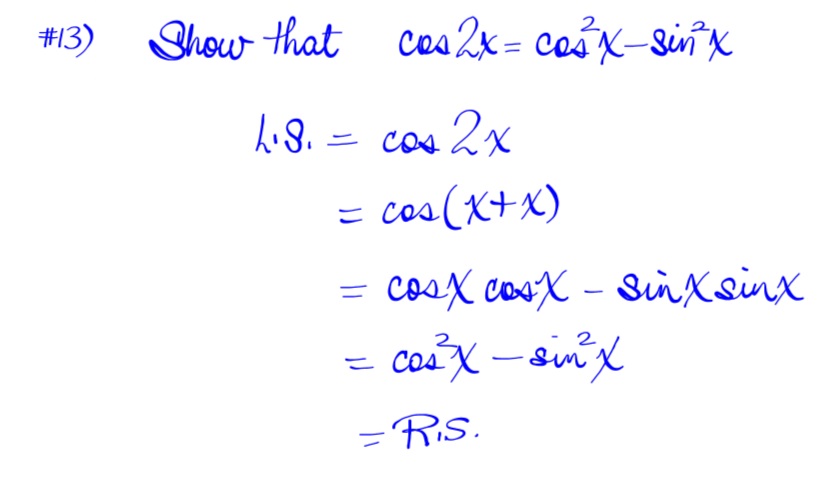 #13) Show that cos2x = cos²x − sin²x
L.S. = cos 2x
= cos(x+x)
= cosx cosx − sinx sinx
= cos²x − sin²x
= R.S.